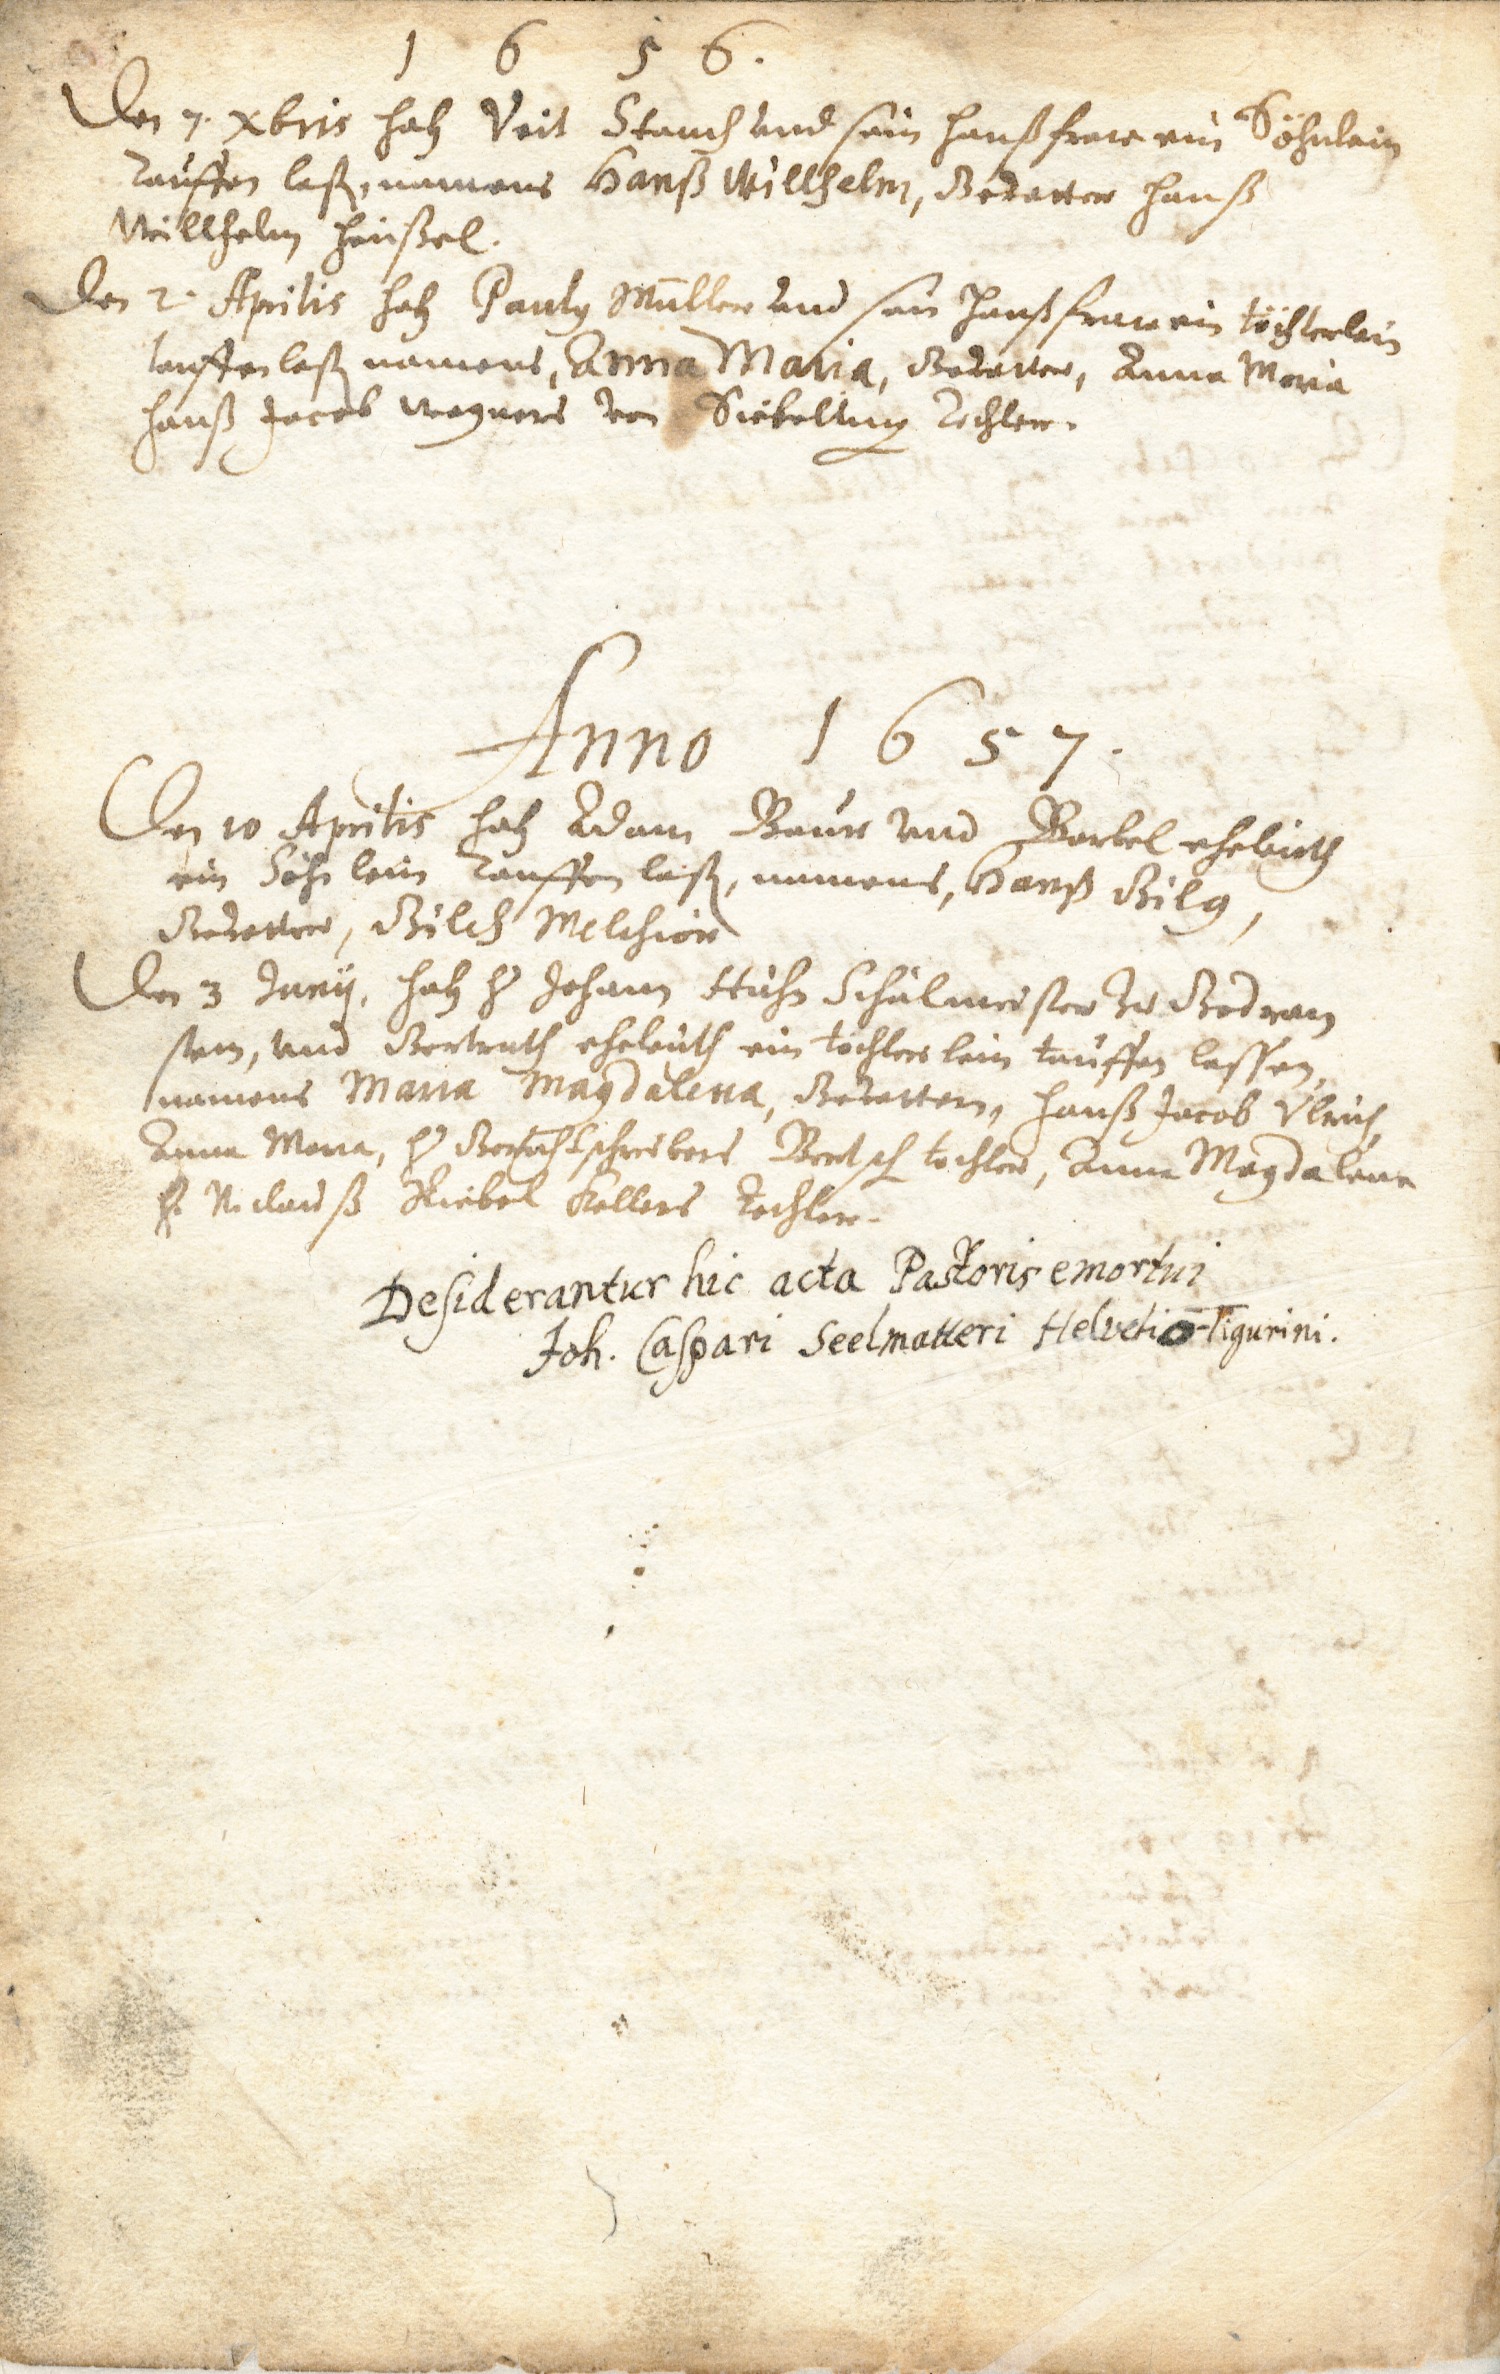 1 6 5 6.
Den 7. Xbris hatt Veit Stauch und sein haußfraw ein Söhnlein
Tauffen laß, namens Hanß Willhelm, Gevatter hanß
Willhelm heußel.
Den 2. Aprilis hatt Pauly Müller und sein haußfraw ein töchterlein
tauffen laß namens, Anna Maria, Gevatter, Anna Maria
hanß Jacob Wagners von Siebelting dochter.
Anno 1 6 5 7.
Den 10 Aprilis hatt Adam Baur und Barbel eheleuth
ein Söhnlein Tauffen laß, namens, Hanß Gilg,
Gevatter, Gilch Melchior
Den 3 Junij, hatt H Johann Huhn Schulmeister zu Godram
stein, und Gertruth eheleuth ein töchterlein tauffen lassen,
namens Maria Magdalena, Gevattern, hanß Jacob Ulrich,
Anna Maria, H Gerichtschreibers tochter, Anna Magdalena
H. Niclauß Kellers dochter.
Desiderantur hic acta Pastoris emortui
Joh. Caspari Seelmatteri Helvetio-Tigurini.